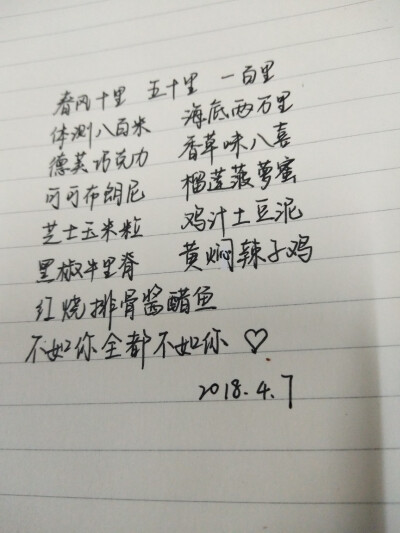 春风十里 五十里 一百里
体测八百米 海底两万里
德芙巧克力 香草味八喜
可可布朗尼 榴莲菠萝蜜
芝士玉米粒 鸡汁土豆泥
黑椒牛里脊 黄焖辣子鸡
红烧排骨酱醋鱼
不如你全都不如你 ♡
2018.4.7